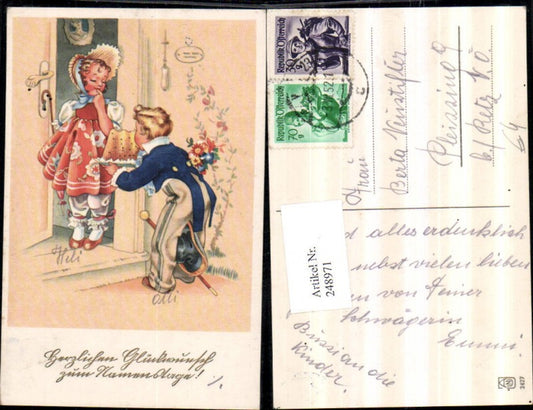 Heli
Otti
Herzlichen Glückwunsch
zum Namenstage! /.
Republik Österreich
30
Republik Österreich
70
52
Frau
Berta Neustifter
Pleissing 9
b/ Retz N.Ö.
64
alles erdenklich
nebst vielen lieben
von Deiner
Schwägerin
Emmi.
Bussi an die
Kinder.
Artikel Nr.
248971
2427